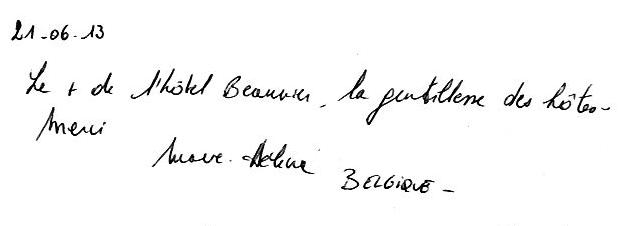 21-06-13
Le + de l'hôtel Beaunier, la gentillesse des hôtes-
Merci
BELGIQUE-